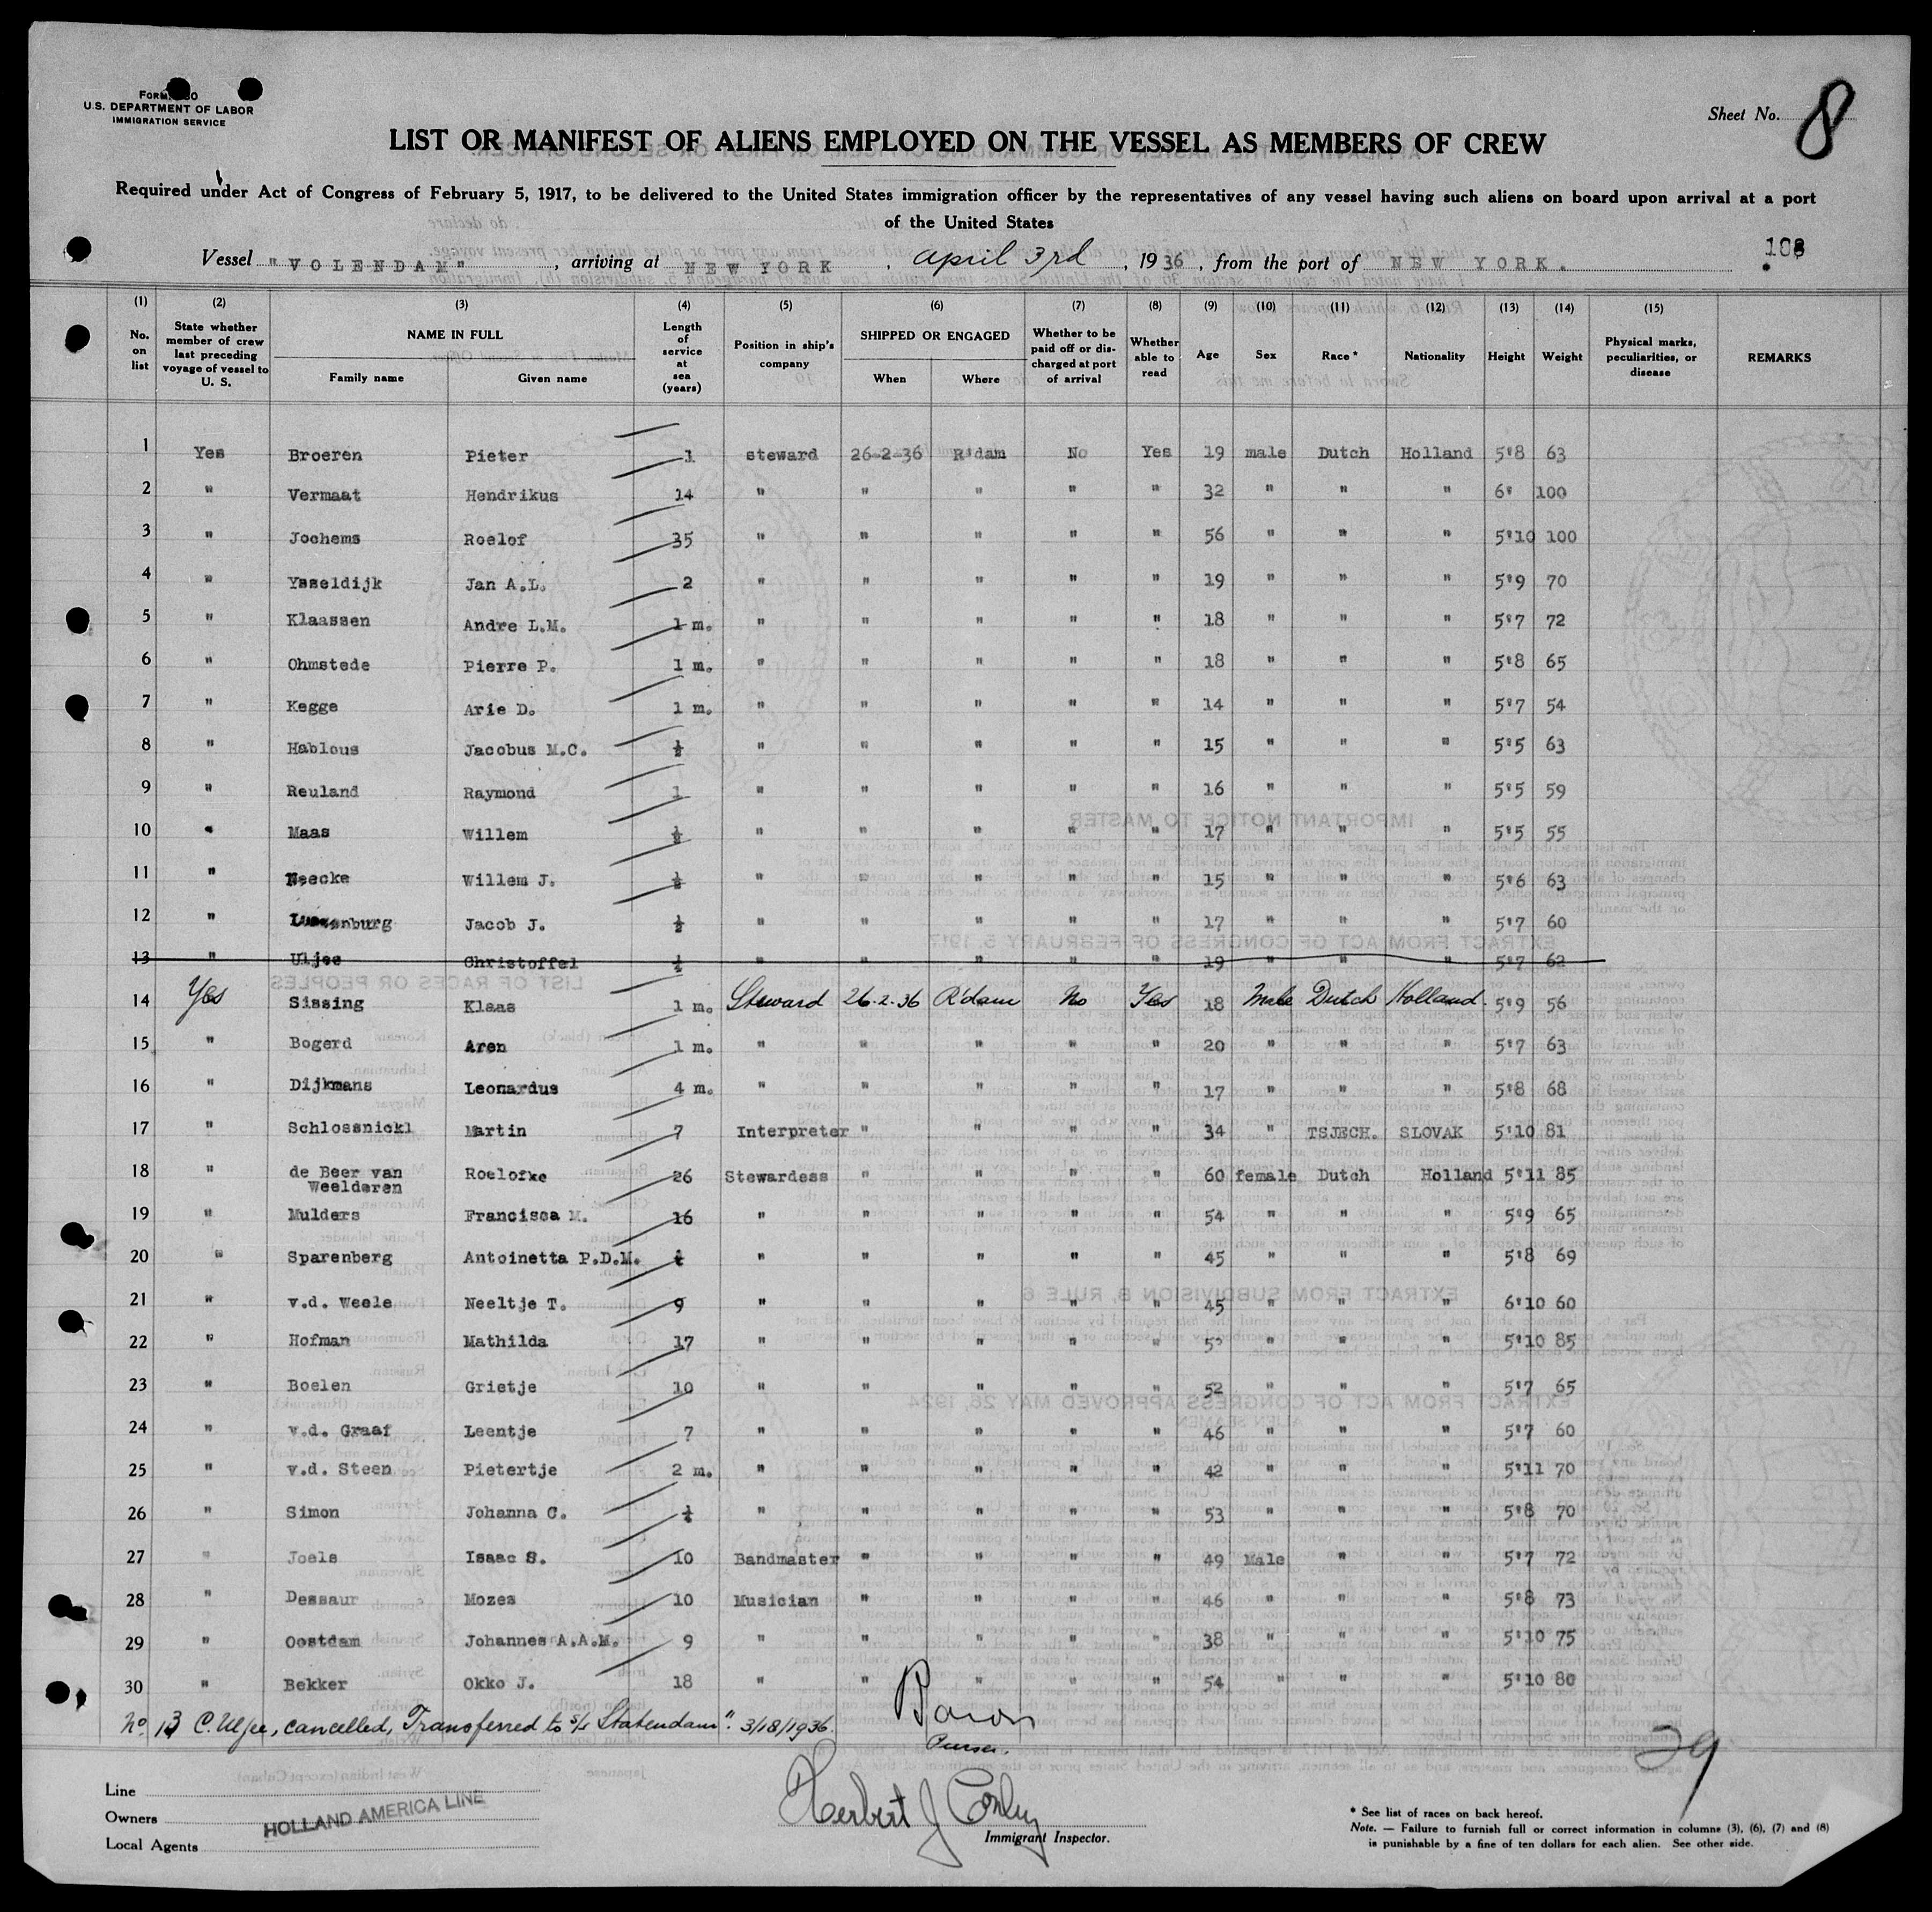 FORM 680
U.S. DEPARTMENT OF LABOR
IMMIGRATION SERVICE
Sheet No. 8
LIST OR MANIFEST OF ALIENS EMPLOYED ON THE VESSEL AS MEMBERS OF CREW
Required under Act of Congress of February 5, 1917, to be delivered to the United States immigration officer by the representatives of any vessel having such aliens on board upon arrival at a port
of the United States
108
Vessel "VOLENDAM", arriving at NEW YORK, April 3rd, 1936, from the port of NEW YORK.
(1) (2) (3) (4) (5) (6) (7) (8) (9) (10) (11) (12) (13) (14) (15)
No. on list State whether member of crew last preceding voyage of vessel to U. S. NAME IN FULL Family name Given name Length of service at sea (years) Position in ship's company SHIPPED OR ENGAGED When Where Whether to be paid off or discharged at port of arrival Whether able to read Age Sex Race * Nationality Height Weight Physical marks, peculiarities, or disease REMARKS
1 Yes Broeren Pieter 1 steward 26-2-36 R'dam No Yes 19 male Dutch Holland 5'8 63
2 " Vermaat Hendrikus 14 " " " " " 32 " " " 6' 100
3 " Jochems Roelof 35 " " " " " 56 " " " 5'10 100
4 " Ysseldijk Jan A.L. 2 " " " " " 19 " " " 5'9 70
5 " Klaassen Andre L.M. 1 m. " " " " " 18 " " " 5'7 72
6 " Ohmstede Pierre P. 1 m. " " " " " 18 " " " 5'8 65
7 " Kegge Arie D. 1 m. " " " " " 14 " " " 5'7 54
8 " Hablous Jacobus M.C. ½ " " " " " 15 " " " 5'5 63
9 " Reuland Raymond 1 " " " " " 16 " " " 5'5 59
10 " Maas Willem ½ " " " " " 17 " " " 5'5 55
11 " Neecke Willem J. ½ " " " " " 15 " " " 5'6 63
12 " Jacob J. ½ " " " " " 17 " " " 5'7 60
13 " Uljee Christoffel ½ " " " " 19 " " " 5'7 62
14 Yes Sissing Klaas 1 m. Steward 26-2-36 R'dam No Yes 18 Male Dutch Holland. 5'9 56
15 " Bogerd Aren 1 m. " " " " " 20 " " " 5'7 63
16 " Dijkmans Leonardus 4 m. " " " " " 17 " " " 5'8 68
17 " Schlossnickl Martin 7 Interpreter " " " " 34 " TSJECH. SLOVAK 5'10 81
18 " de Beer van Weelderen Roelofke 26 Stewardess " " " " 60 female Dutch Holland 5'11 85
19 " Mulders Francisca M. 16 " " " " " 54 " " " 5'9 65
20 " Sparenberg Antoinetta P.D.M. " " " " " 45 " " " 5'8 69
21 " v.d. Weele Neeltje T. 9 " " " " " 45 " " " 6'10 60
22 " Hofman Mathilda 17 " " " " " " " " 5'10 85
23 " Boelen Grietje 10 " " " " " 52 " " " 5'7 65
24 " v.d. Graaf Leentje 7 " " " " " 46 " " " 5'7 60
25 " v.d. Steen Pietertje 2 m. " " " " " 42 " " " 5'11 70
26 " Simon Johanna C. " " " " " 53 " " " 5'8 70
27 " Joels Isaac S. 10 Bandmaster " " " " 49 Male " " 5'7 72
28 " Dessaur Mozes 10 Musician " " " " 46 " " " 5'8 73
29 " Oostdam Johannes A.A.M. 9 " " " " " 38 " " " 5'10 75
30 " Bekker Okko J. 18 " " " " " 54 " " " 5'10 80
No. 13 C. Uljee, cancelled, Transferred to s/s Statendam". 3/18/1936.
Purser.
29
Line
Owners
Local Agents
HOLLAND AMERICA LINE
Herbert J Conley
Immigrant Inspector.
* See list of races on back hereof.
Note. — Failure to furnish full or correct information in columns (3), (6), (7) and (8)
is punishable by a fine of ten dollars for each alien. See other side.